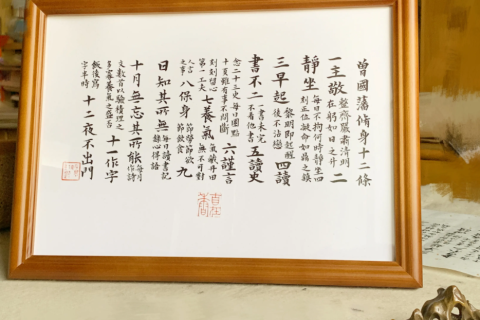 曾國藩脩身十二條
一主敬整齊嚴肅清明在躬如日之升二
靜坐每日不拘何時靜坐四刻正位凝命如鼎之鎮
三早起黎明即起醒後不沾戀四讀
書不二一書未完不看他書五讀史
念二十三史每日圈點十頁雖有事不間斷六謹言
刻刻留心第一工夫七養氣氣藏丹田無不可對
人言之事八保身節勞節欲節飲食九
日知其所無每日讀書記錄心得語
十月無忘其所能每月作詩
文數首以驗積理之多寡養氣之盛否十一作字
飯後寫字半時十二夜不出門